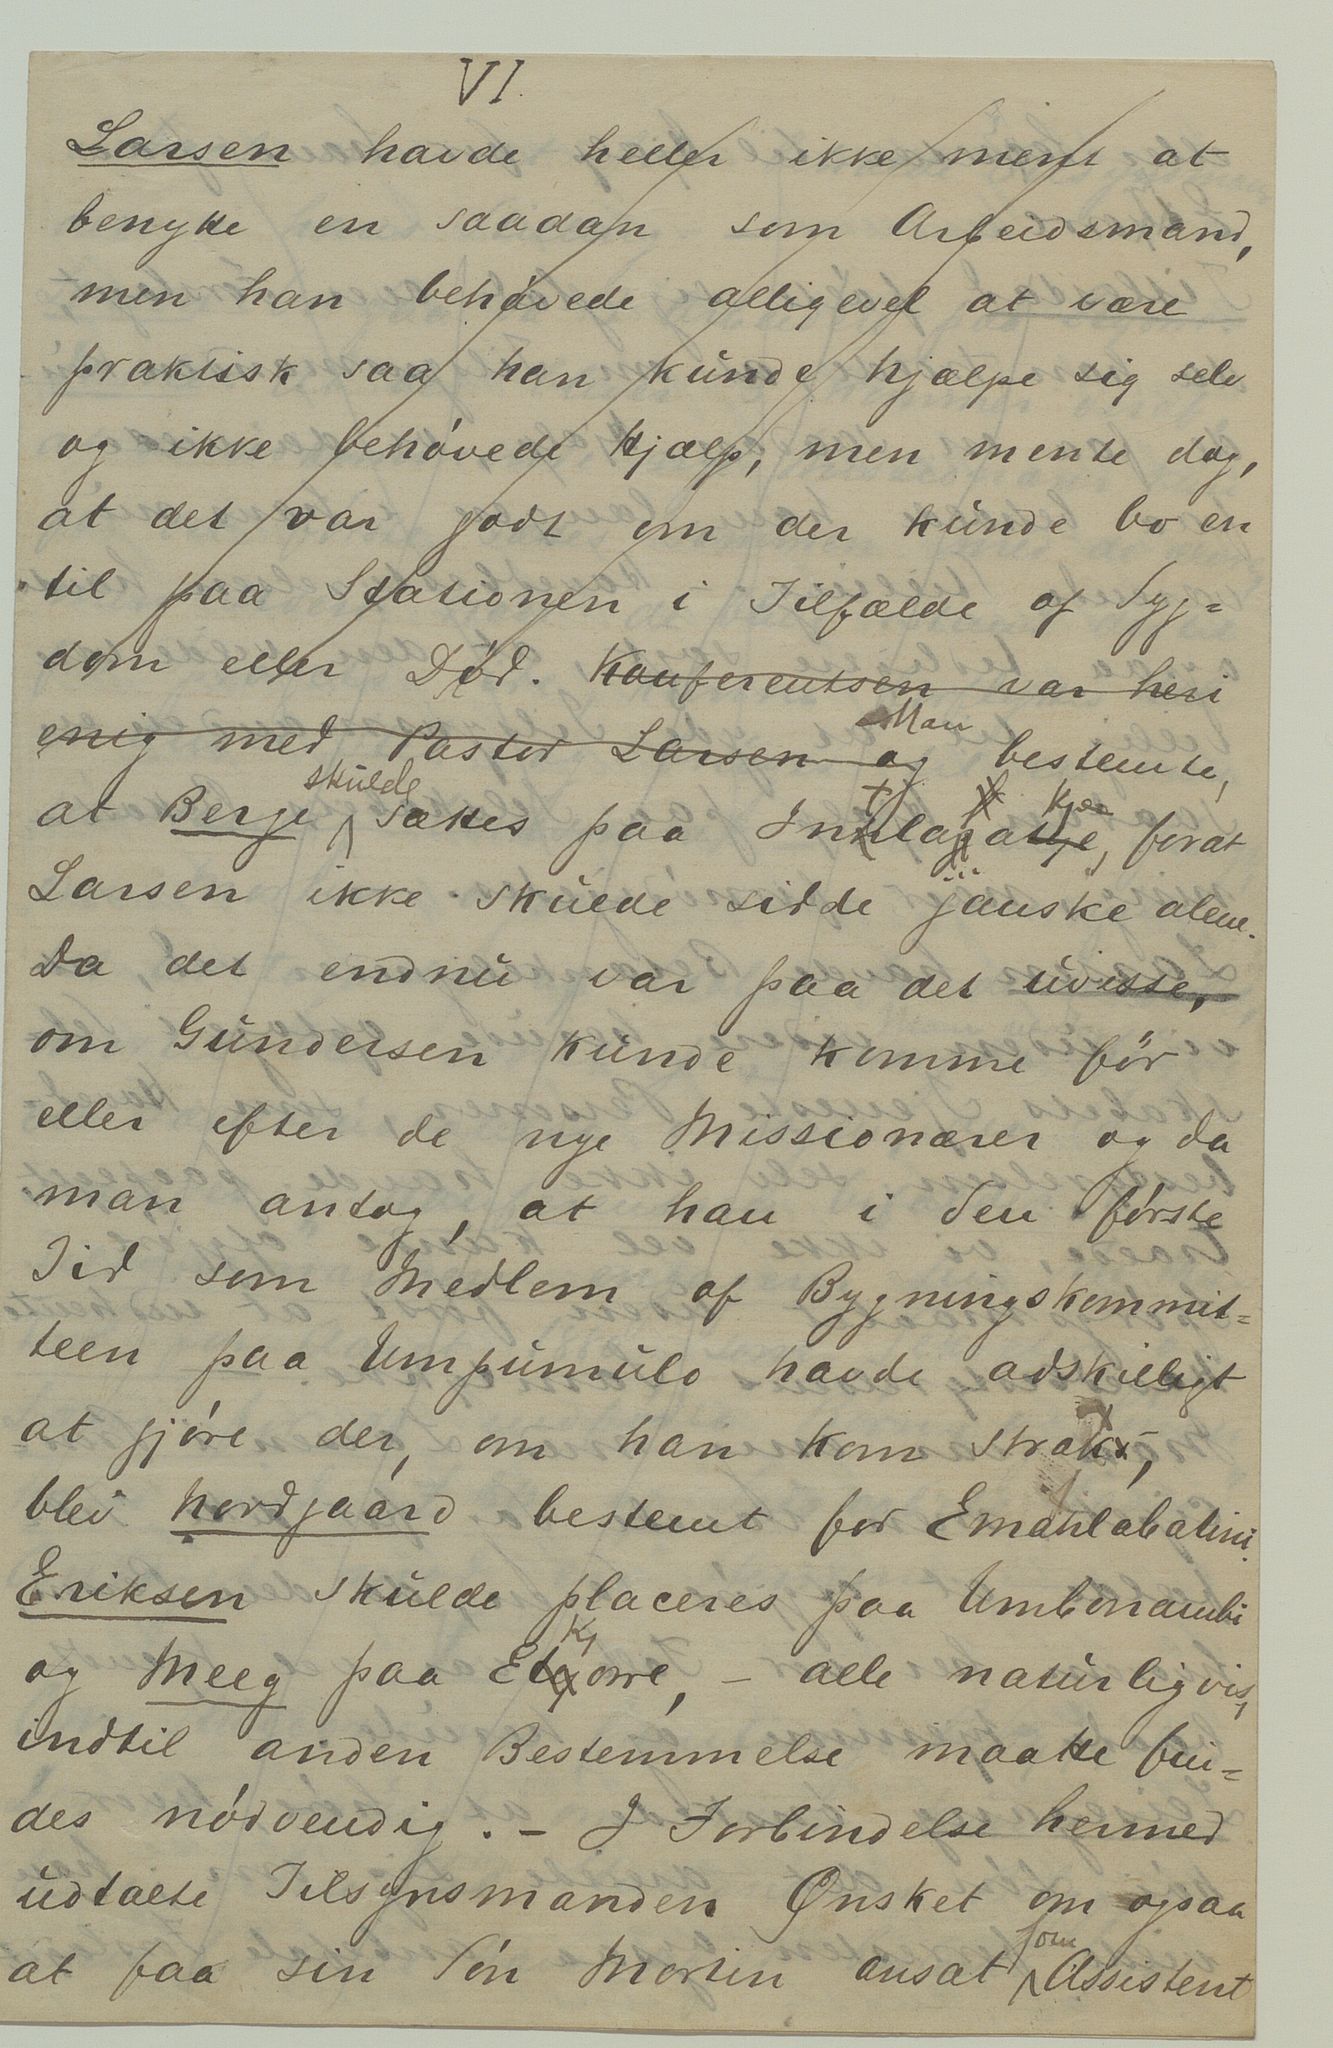 VI.
Larsen havde heller ikke ment at
benytte en saadan som Arbeidsmand,
men han behövede alligevel at være
praktisk saa han kunde hjælpe sig selv
og ikke behövede Hjælp, men mente dog,
at det var godt om der kunde bo en
til paa Stationen i Tilfælde af Syg=
dom eller Död. Konferentsen var heri
enig med Pastor Larsen og Man bestemte,
at Berge skulde sættes paa forat
Larsen ikke skulde sidde ganske alene.
Da det endnu var paa det uvisse,
om Gundersen kunde komme för
eller efter de nye Missionærer og da
man antog, at han i den förste
Tid som Medlem af Bygningskommit=
teen paa Umpumulo havde adskilligt
at gjöre der, om han kom straks,
blev Nordgaard bestemt for Emahlabatini.
Eriksen skulde placeres paa Umbonambi
og Meeg paa Ekjowe, - alle naturligvis,
indtil anden Bestemmelse maatte fin=
des nödvendig. - I Forbindelse hermed
udtalte Tilsynsmanden Ønsket om ogsaa
at faa sin Sön Martin ansat som Assistent